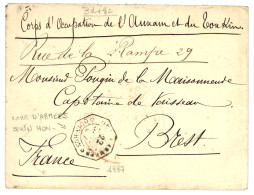 Corps d'Occupation de l'Annam et du Tonkin
Rue de la Rampe 29
Monsieur Pougin de la Maisonneuve
Capitaine de Vaisseau
Brest
France
CORR. D'ARMEES
1887